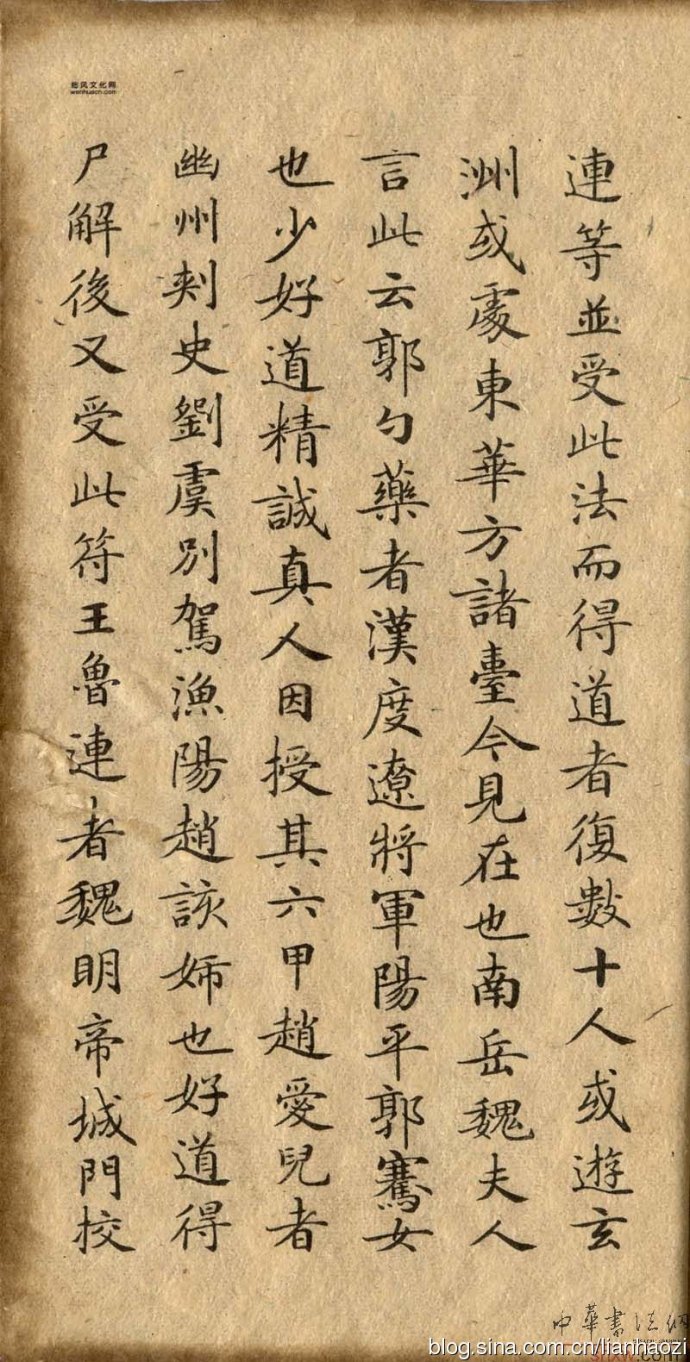 連等並受此法而得道者復數十人或遊玄
洲或處東華方諸臺今見在也南岳魏夫人
言此云郭勺藥者漢度遼將軍陽平郭騫女
也少好道精誠真人因授其六甲趙愛兒者
幽州刺史劉虞別駕漁陽趙該姉也好道得
尸解後又受此符王魯連者魏明帝城門校
中華書法網
blog.sina.com.cn/lianhaozi